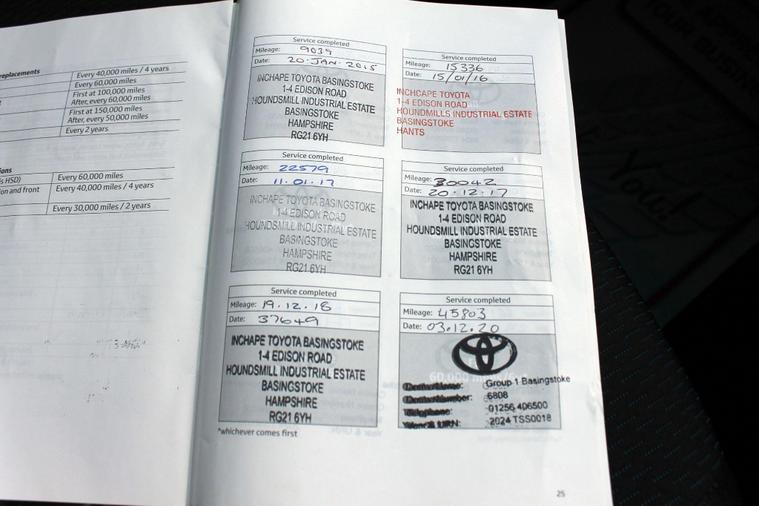 eplacements
Every 40,000 miles / 4 years
Every 60,000 miles
First at 100,000 miles
After, every 60,000 miles
First at 150,000 miles
After, every 50,000 miles
Every 2 years
ions
s HSD)
Every 60,000 miles
ion and front
Every 40,000 miles / 4 years
Every 30,000 miles / 2 years
Service completed
Mileage: 9039
Date: 20-JAN-2015
INCHAPE TOYOTA BASINGSTOKE
1-4 EDISON ROAD
HOUNDSMILL INDUSTRIAL ESTATE
BASINGSTOKE
HAMPSHIRE
RG21 6YH
Service completed
Mileage: 15336
Date: 15/01/16
INCHCAPE TOYOTA
1-4 EDISON ROAD
HOUNDMILLS INDUSTRIAL ESTATE
BASINGSTOKE
HANTS
Service completed
Mileage: 22579
Date: 11.01.17
INCHAPE TOYOTA BASINGSTOKE
1-4 EDISON ROAD
HOUNDSMILL INDUSTRIAL ESTATE
BASINGSTOKE
HAMPSHIRE
RG21 6YH
Service completed
Mileage: 30042
Date: 20.12.17
INCHAPE TOYOTA BASINGSTOKE
1-4 EDISON ROAD
HOUNDSMILL INDUSTRIAL ESTATE
BASINGSTOKE
HAMPSHIRE
RG21 6YH
Service completed
Mileage: 19.12.18
Date: 37649
INCHAPE TOYOTA BASINGSTOKE
1-4 EDISON ROAD
HOUNDSMILL INDUSTRIAL ESTATE
BASINGSTOKE
HAMPSHIRE
RG21 6YH
Service completed
Mileage: 45803
Date: 03.12.20
Group 1 Basingstoke
6808
01256 406500
2024 TSS0018
*whichever comes first
25